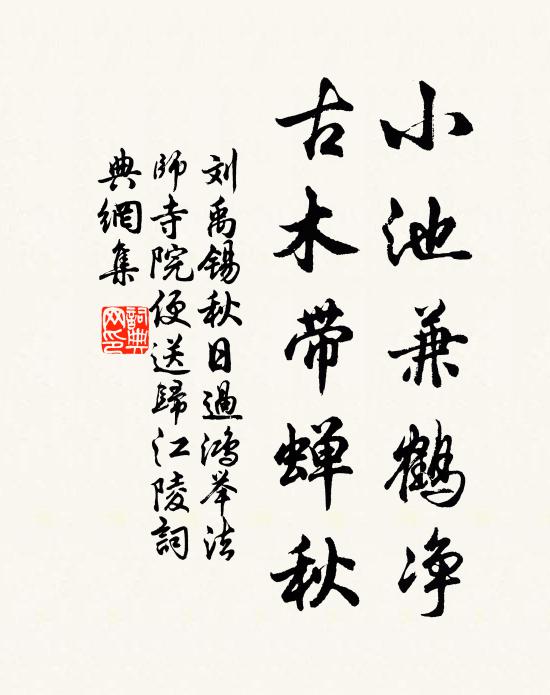 小池兼鹤净
古木带蝉秋
刘禹锡秋日過鴻举法
師寺院便送歸江陵詞
典網集
詞典网印